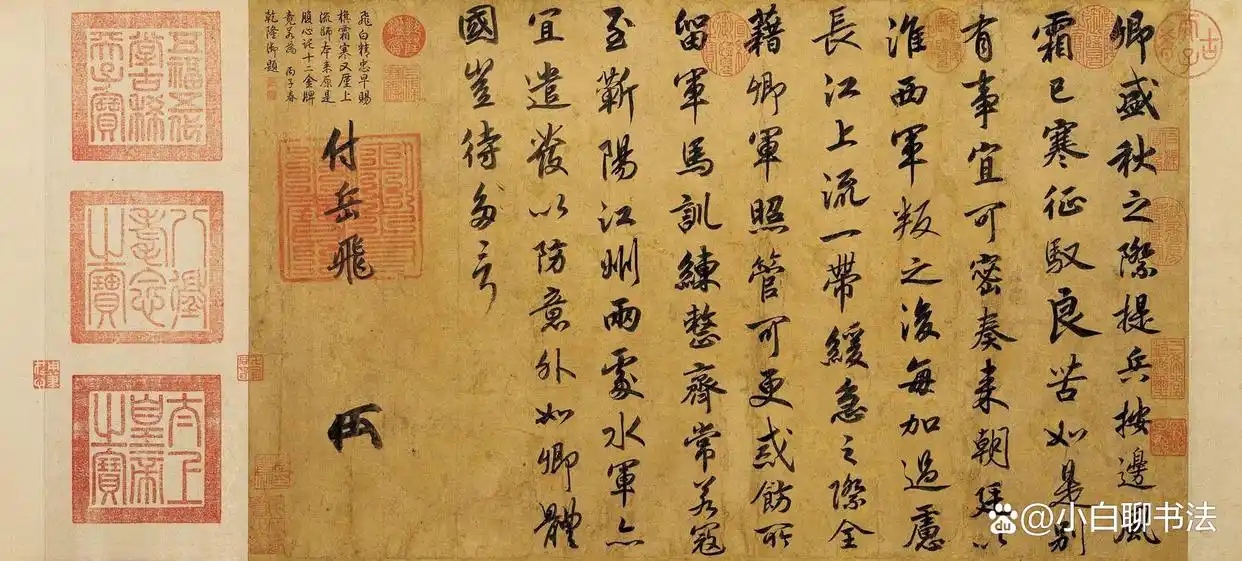 卿盛秋之際提兵按邊風
霜已寒征馭良苦如是別
有事宜可密奏来朝廷以
淮西軍叛之後每加過慮
長江上流一帶緩急之際全
藉卿軍照管可更戒飭所
留軍馬訓練整齊常若寇
至蘄陽江州兩處水軍亦
宜遣發以防意外如卿體
國豈待多言
付岳飛
飛白精忠早賜
旗霜寒又歷上
流師本来原是
腹心託十二金牌
竟若為 丙子春
乾隆御題
古希天子
五福五代
堂古稀
天子寶
八徵
耄念
之寶
太上
皇帝
之寶
@小白聊书法